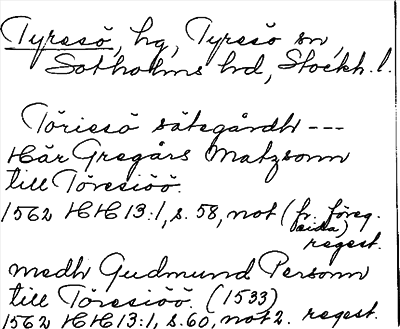 Tyresö, hg, Tyresö sn,
Sotholms hd, Stockh. l.
Töriesö sätsgårdh ---
Här Gregårs Matzsonn
till Töresiöö.
1562 HH 13:1, s. 58, not (fr. föreg.
sida)
regest.
medh Gudmund Personn
till Töresiöö. (1533)
1562 HH 13:1, s. 60, not 2. regest.